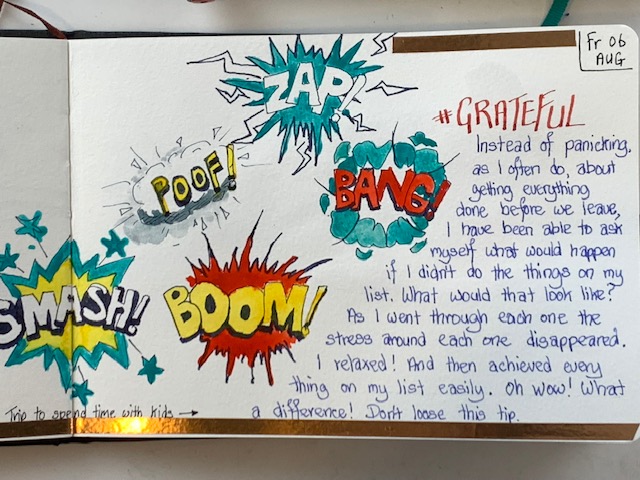 Fr 06
AUG
ZAP!
POOF!
BANG!
SMASH!
BOOM!
#GRATEFUL
Instead of panicking,
as I often do, about
getting everything
done before we leave,
I have been able to ask
myself what would happen
if I didn't do the things on my
list. What would that look like?
As I went through each one the
stress around each one disappeared.
I relaxed! And then achieved every
thing on my list easily. Oh wow! What
a difference! Don't loose this tip.
Trip to spend time with kids →